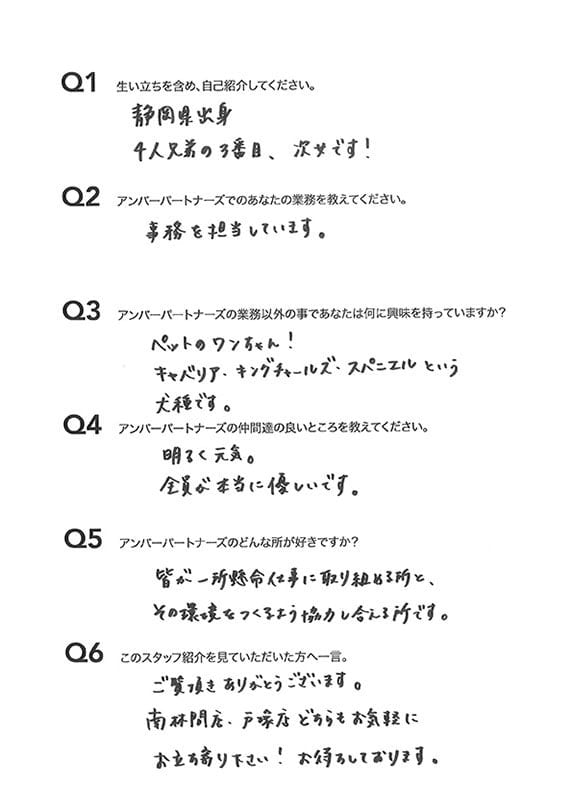 Q1 生い立ちを含め、自己紹介してください。
静岡県出身
4人兄弟の3番目、次女です!
Q2 アンバーパートナーズでのあなたの業務を教えてください。
事務を担当しています。
Q3 アンバーパートナーズの業務以外の事であなたは何に興味を持っていますか?
ペットのワンちゃん!
キャバリア・キングチャールズ・スパニエルという
犬種です。
Q4 アンバーパートナーズの仲間達の良いところを教えてください。
明るく元気。
全員が本当に優しいです。
Q5 アンバーパートナーズのどんな所が好きですか?
皆が一所懸命仕事に取り組める所と、
その環境をつくるよう協力し合える所です。
Q6 このスタッフ紹介を見ていただいた方へ一言。
ご覧頂きありがとうございます。
南林間店、戸塚店どちらもお気軽に
お立ち寄り下さい! お待ちしております。